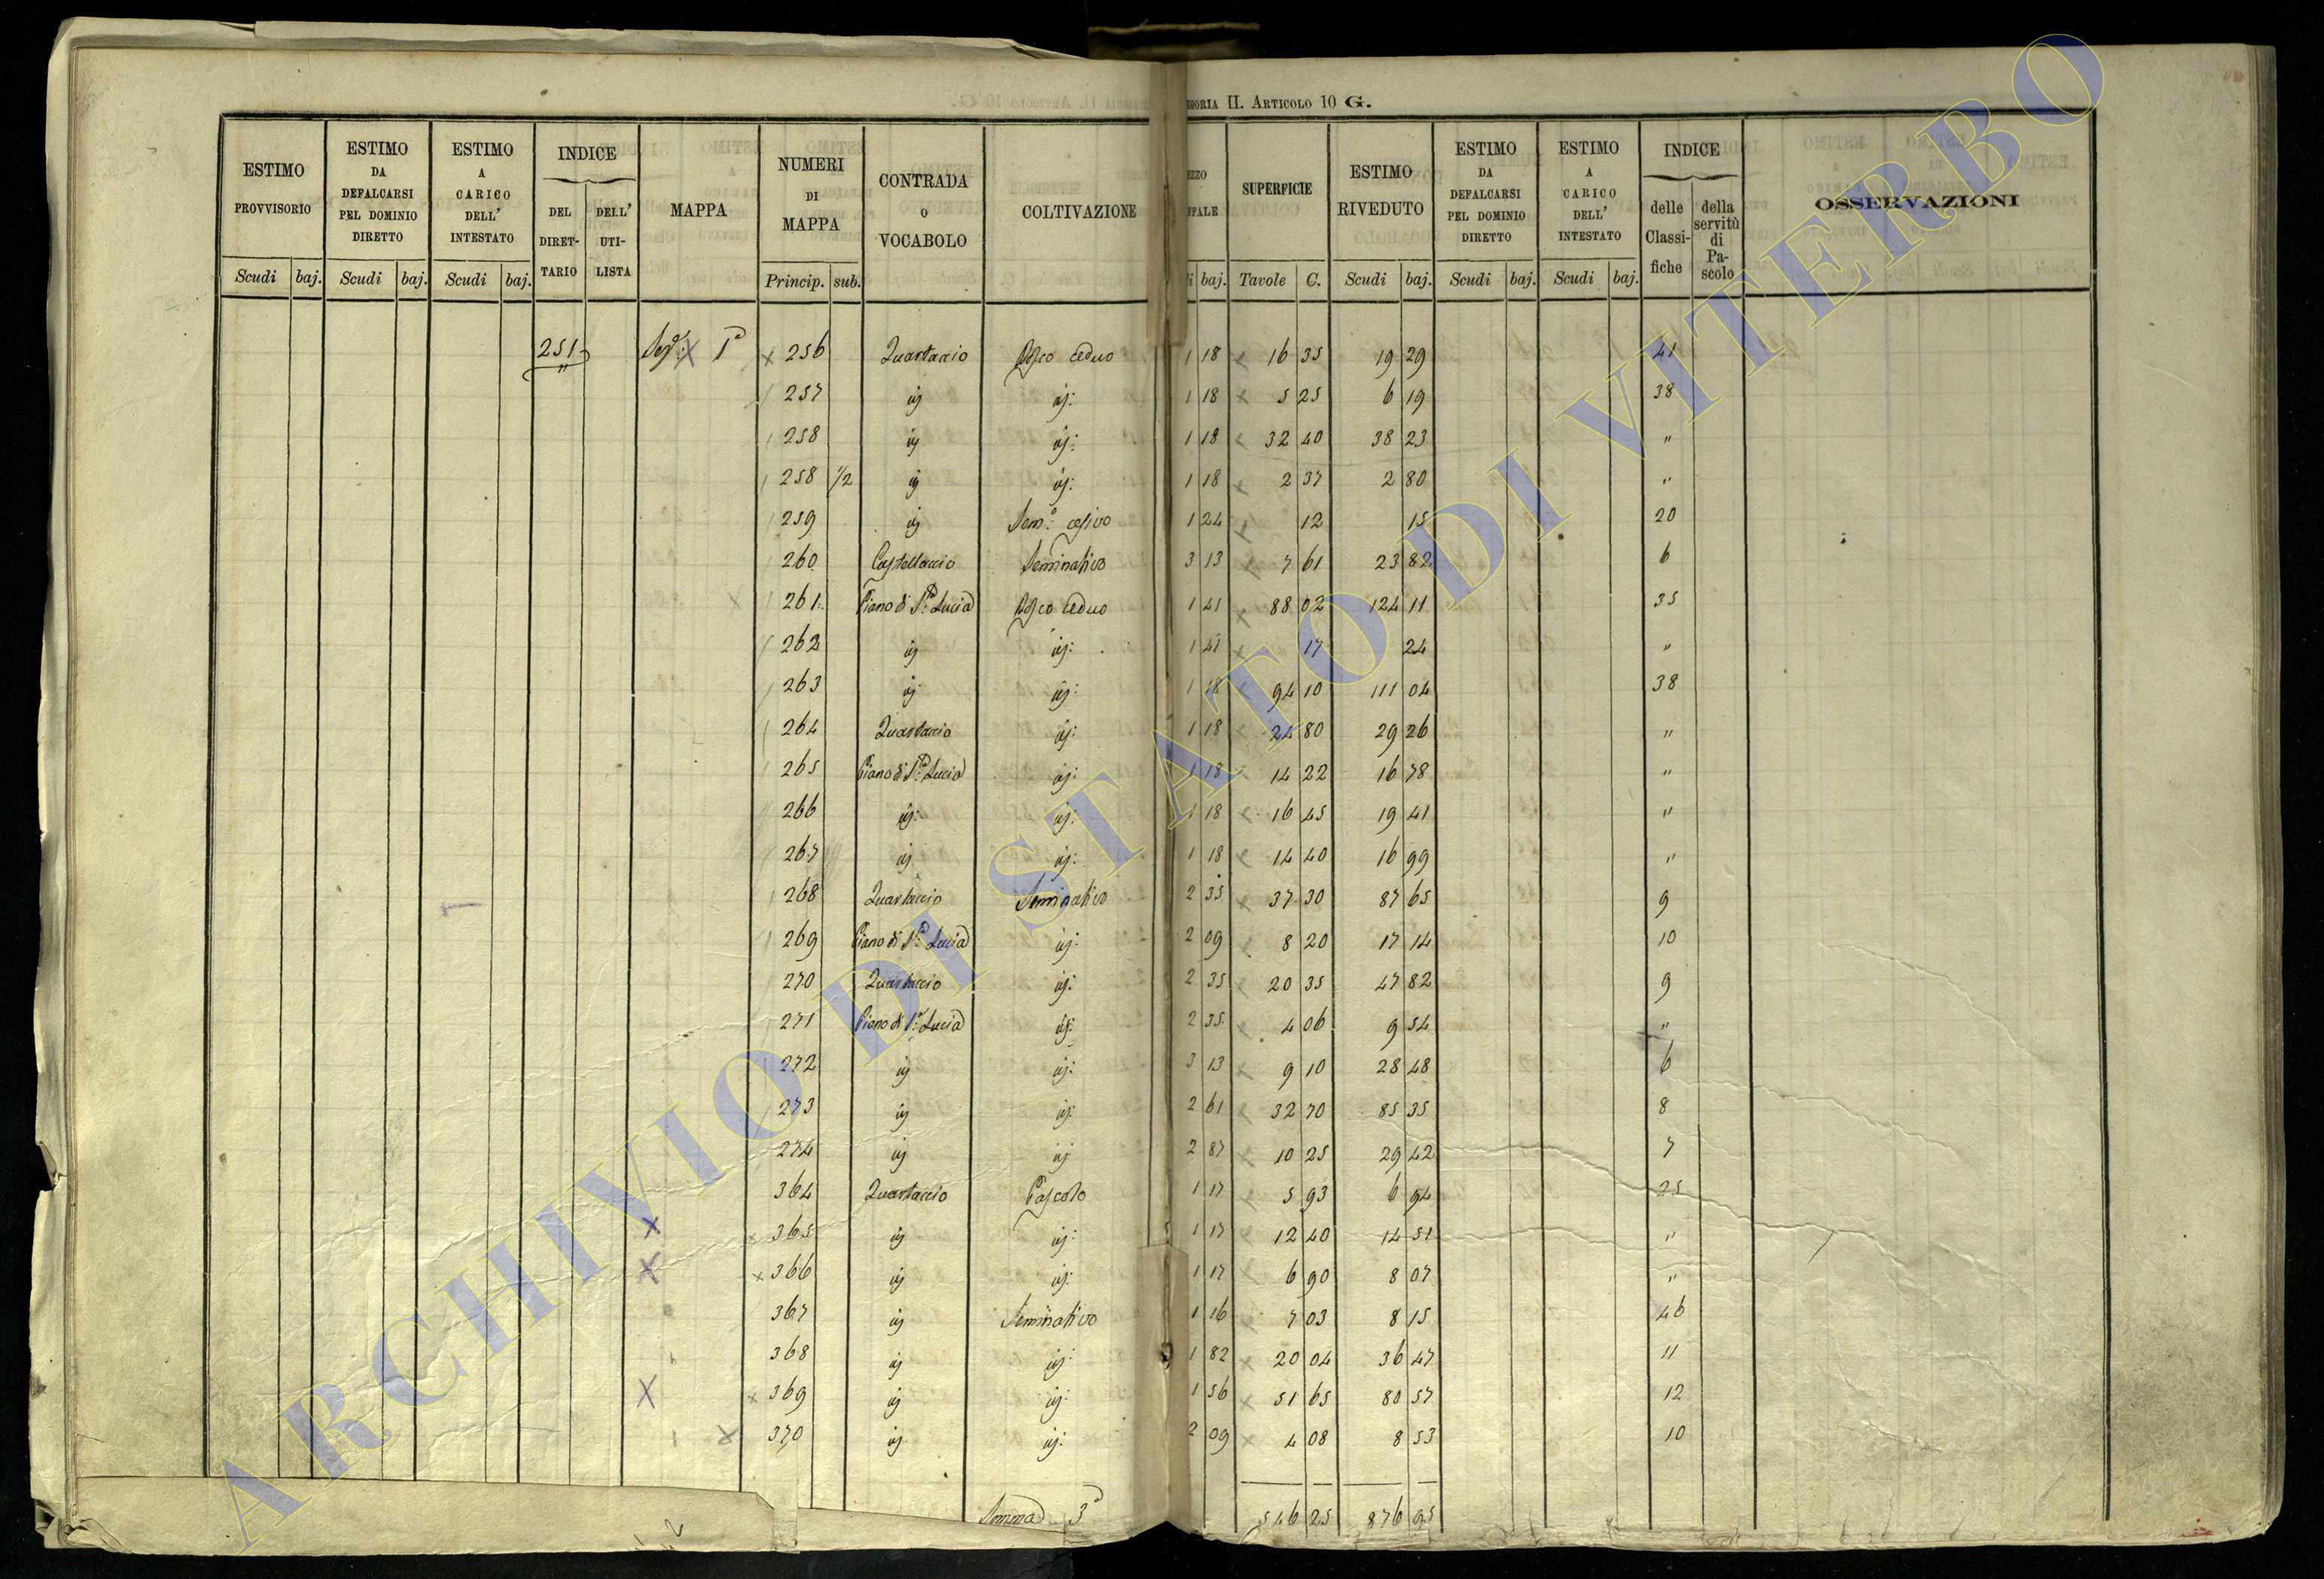 EGORIA II. ARTICOLO 10 G.
ESTIMO PROVVISORIO | ESTIMO DA DEFALCARSI PEL DOMINIO DIRETTO | ESTIMO A CARICO DELL' INTESTATO | INDICE DEL DIRET-TARIO | DELL' UTI-LISTA | MAPPA | NUMERI DI MAPPA | CONTRADA O VOCABOLO | COLTIVAZIONE | EZZO IFFALE | SUPERFICIE | ESTIMO RIVEDUTO | ESTIMO DA DEFALCARSI PEL DOMINIO DIRETTO | ESTIMO A CARICO DELL' INTESTATO | INDICE delle Classi-fiche | della servitù di Pa-scolo | OSSERVAZIONI
Scudi baj. | Scudi baj. | Scudi baj. | Princip. sub. | i baj. | Tavole C. | Scudi baj. | Scudi baj. | Scudi baj.
251 Sez: 1ª 256 Quartaccio Bosco ceduo 1 18 16 35 19 29 41
257 iij iij: 1 18 5 25 6 19 38
258 iij iij: 1 18 32 40 38 23 "
258 1/2 iij iij: 1 18 2 37 2 80 "
259 iij Sem.º cesivo 1 24 12 15 20
260 Castellaccio Seminativo 3 13 7 61 23 82 6
261 Piano di S.ª Lucia Bosco ceduo 1 41 88 02 124 11 35
262 iij iij: 1 41 17 24 "
263 iij iij: 1 18 94 10 111 04 38
264 Quartaccio iij: 1 18 24 80 29 26 "
265 Piano di S.ª Lucia iij: 1 18 14 22 16 78 "
266 iij: iij: 1 18 16 45 19 41 "
267 iij iij: 1 18 14 40 16 99 "
268 Quartaccio Seminativo 2 35 37 30 87 65 9
269 Piano di S.ª Lucia iij: 2 09 8 20 17 14 10
270 Quartaccio iij: 2 35 20 35 47 82 9
271 Piano di S.ª Lucia iij: 2 35 4 06 9 54 "
272 iij iij: 3 13 9 10 28 48 6
273 iij iij: 2 61 32 70 85 35 8
274 iij iij 2 87 10 25 29 42 7
364 Quartaccio Pascolo 1 17 5 93 6 94 25
365 iij iij: 1 17 12 40 14 51 "
366 iij iij: 1 17 6 90 8 07 "
367 iij Seminativo 1 16 7 03 8 15 46
368 iij iij: 1 82 20 04 36 47 11
369 iij iij: 1 56 51 65 80 57 12
370 iij iij: 2 09 4 08 8 53 10
Somma 3ª 546 25 876 95
ARCHIVIO DI STATO DI VITERBO